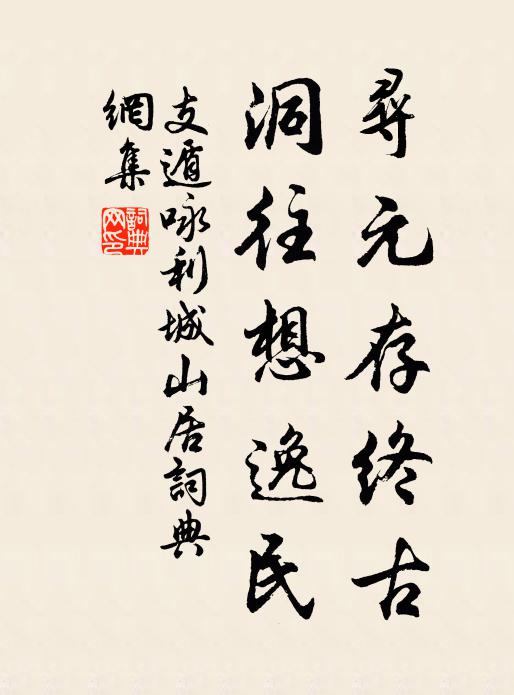 尋元存終古
洞往想逸民
支遁咏利城山居詞典
網集
詞典網印